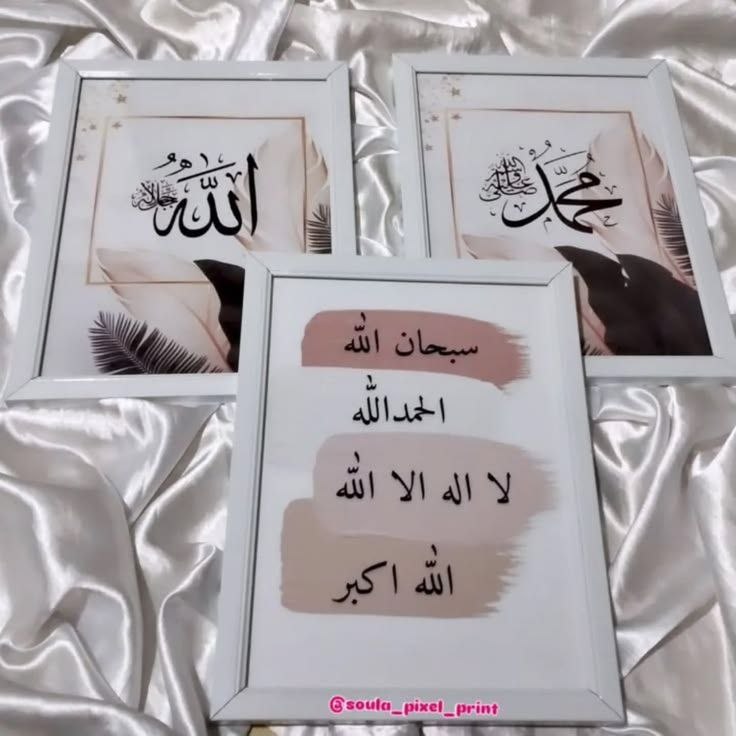 الله
جل جلاله
محمد
صلى الله عليه وسلم
سبحان الله
الحمدالله
لا اله الا الله
الله اكبر
@soula_pixel_print